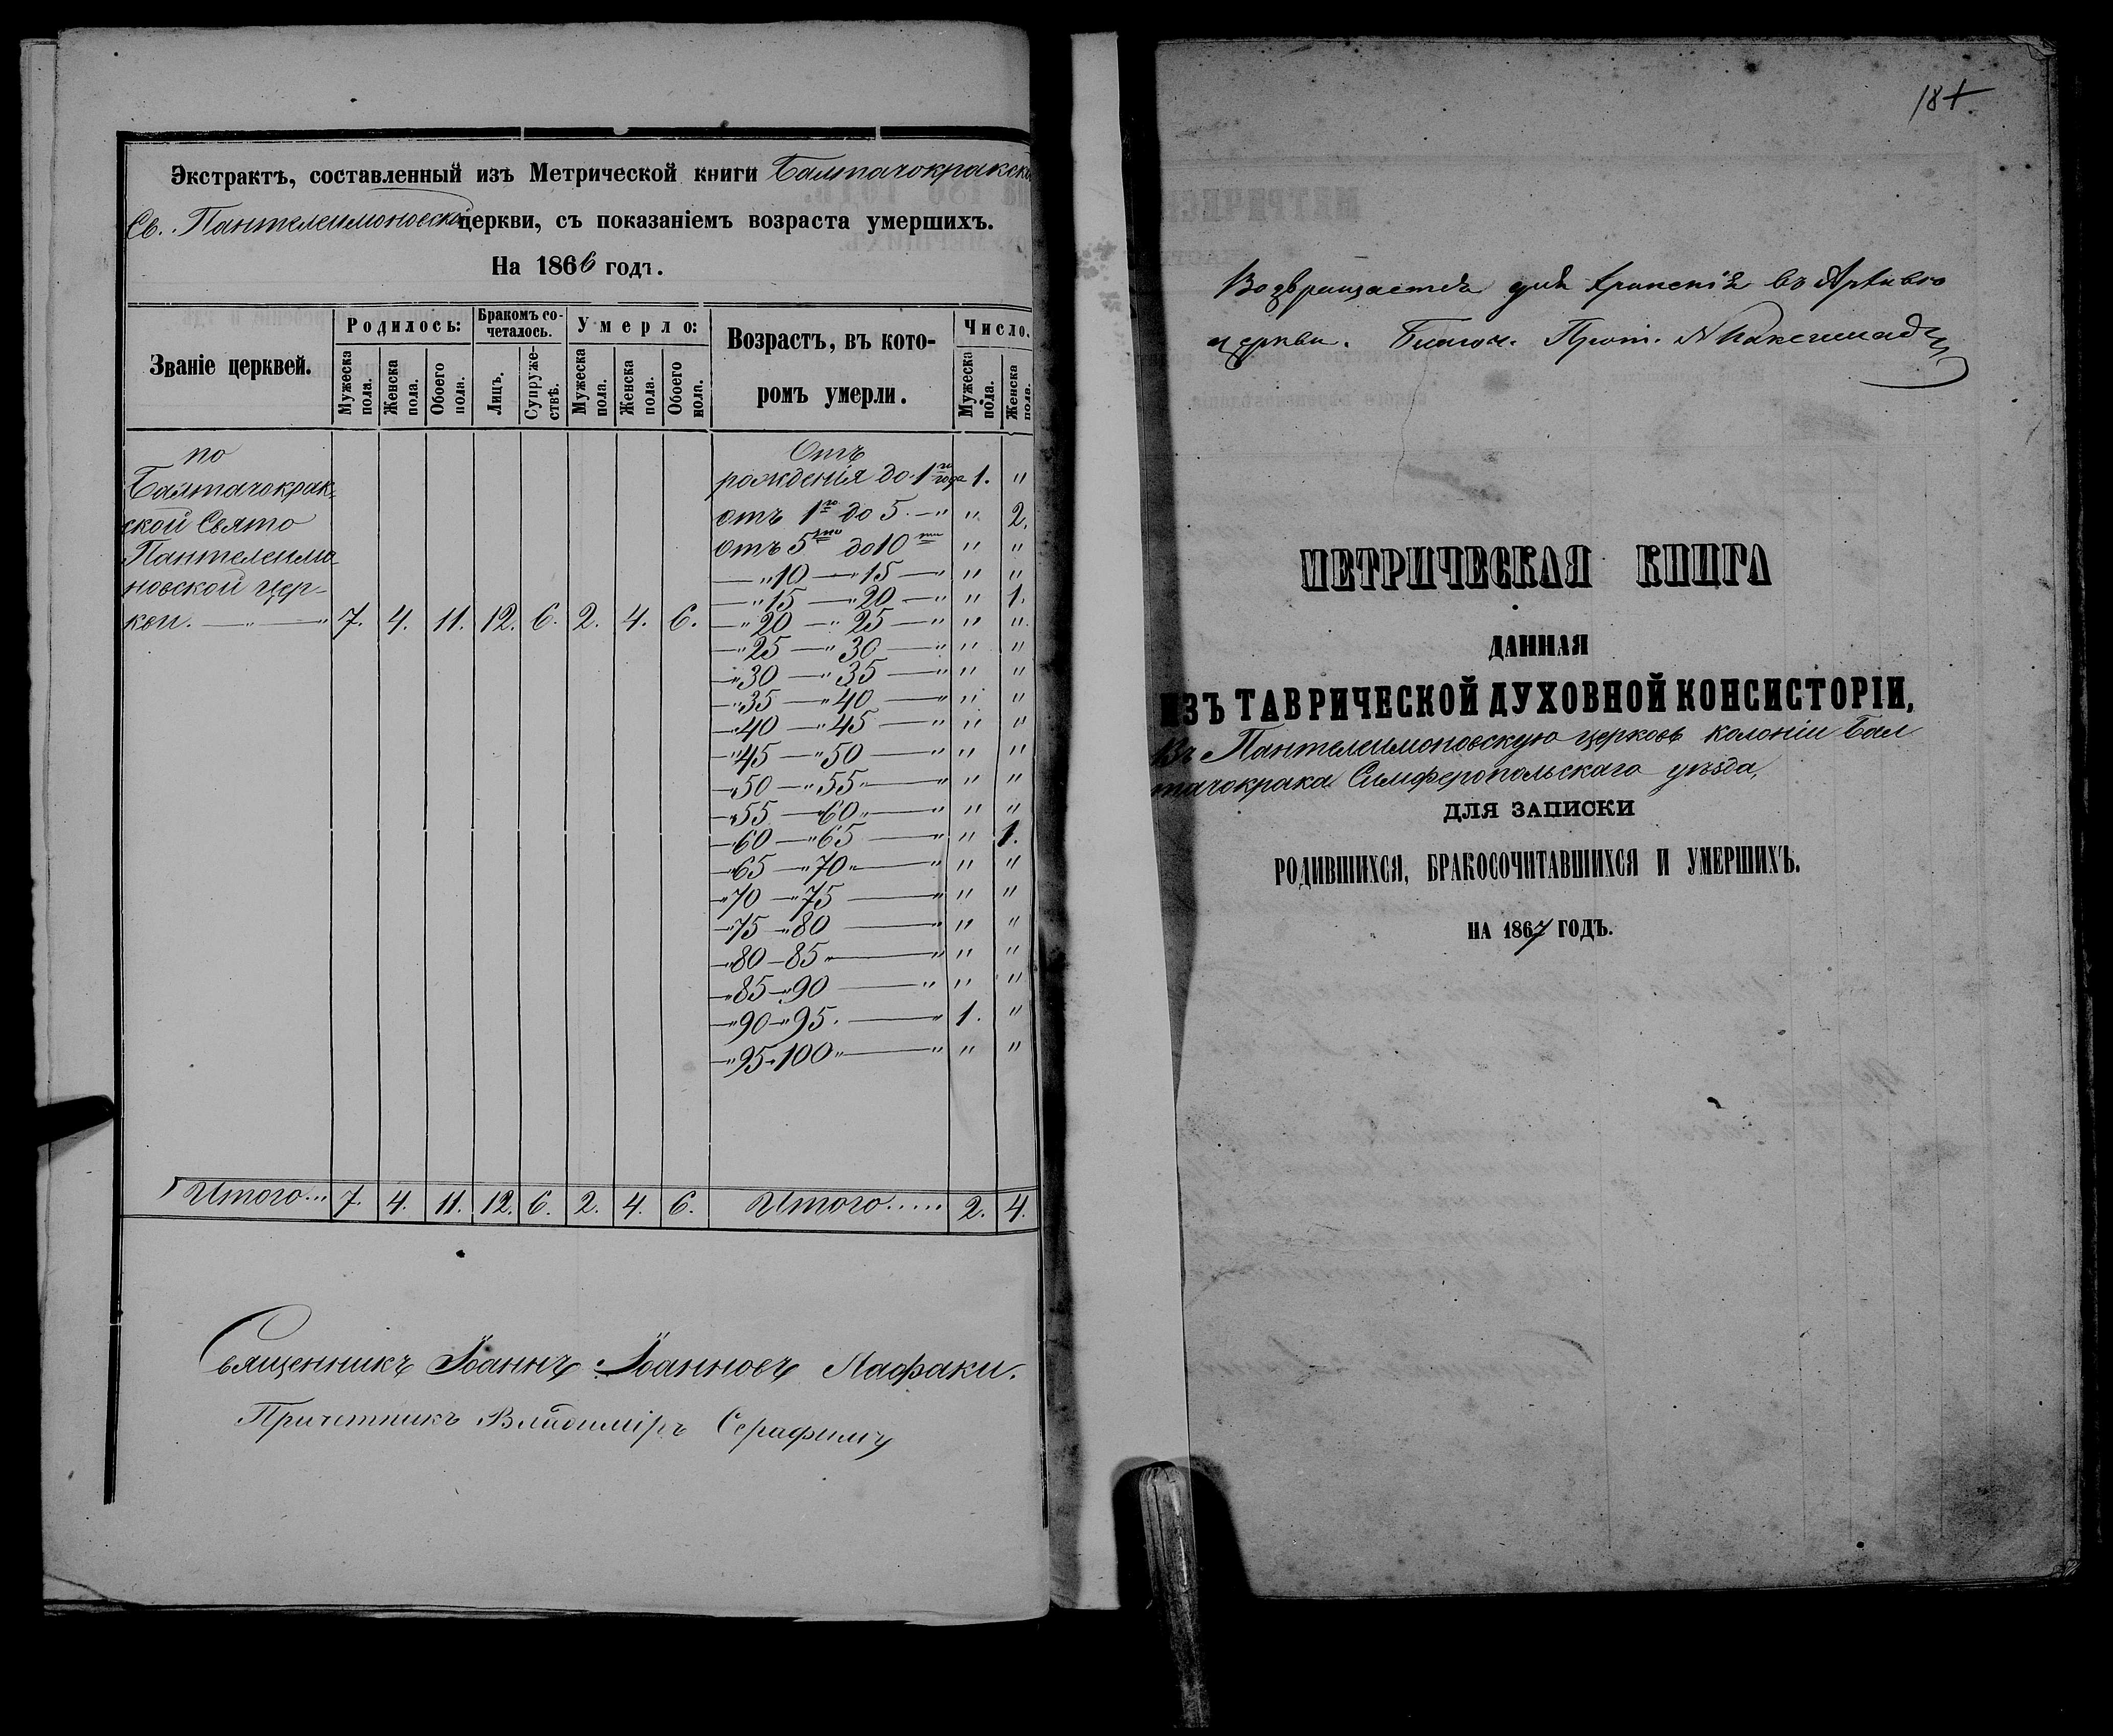 Экстрактъ, составленный изъ Метрической книги Балтачокракско
Св. Пантелеимоновской церкви, съ показаніемъ возраста умершихъ.
На 1866 годъ.
Званіе церквей.
Родилось:
Мужеска пола.
Женска пола.
Обоего пола.
Бракомъ со-
четалось.
Лицъ.
Супруже-
ствъ.
Умерло:
Мужеска пола.
Женска пола.
Обоего пола.
Возрастъ, въ кото-
ромъ умерли.
Число.
Мужеска пола.
Женска пола.
по
Балтачокрак-
ской Свято
Пантелеимо-
новской цер-
кви. — " — " 7. 4. 11. 12. 6. 2. 4. 6.
Отъ
рожденія до 1го года 1. "
отъ 1го до 5. — " " 2.
отъ 5ти до 10ти " "
— " 10 — " 15 — " " "
— " 15 — " 20 — " " 1.
— " 20 — " 25 — " " "
— " 25 — " 30 — " " "
— " 30 — " 35 — " " "
— " 35 — " 40 — " " "
— " 40 — " 45 — " " "
— " 45 — " 50 — " " "
— " 50 — " 55 — " " "
— " 55 — " 60 — " " "
— " 60 — " 65 — " " 1.
— " 65 — " 70 — " " "
— " 70 — " 75 — " " "
— " 75 — " 80 — " " "
— " 80 — 85 — " " "
— " 85 — " 90 — " " "
— " 90 — " 95. — " 1. "
— " 95 " 100 — " " "
Итого... 7. 4. 11. 12. 6. 2. 4. 6. Итого..... 2. 4.
Священникъ Іоаннъ Іоанновъ Лафаки.
Причетникъ Владиміръ Серафимъ
18
Возвращается для храненія въ Архивъ
церкви. Благоч. Прот.
МЕТРИЧЕСКАЯ КНИГА
ДАННАЯ
ИЗЪ ТАВРИЧЕСКОЙ ДУХОВНОЙ КОНСИСТОРІИ,
Въ Пантелеимоновскую церковь колоніи Бал
тачокрака Симферопольскаго уѣзда,
ДЛЯ ЗАПИСКИ
РОДИВШИХСЯ, БРАКОСОЧИТАВШИХСЯ И УМЕРШИХЪ.
НА 1867 ГОДЪ.